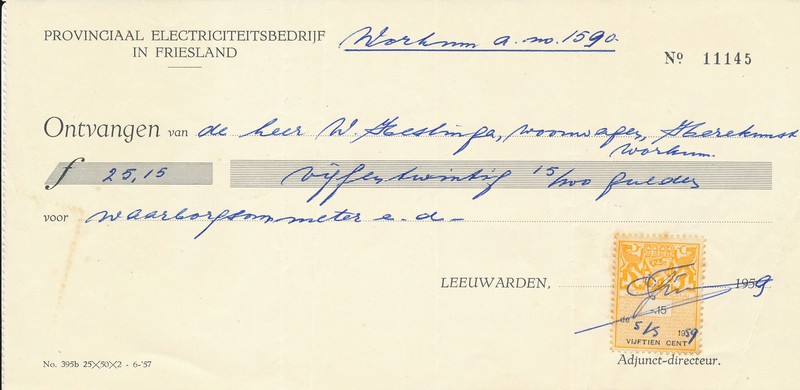 PROVINCIAAL ELECTRICITEITSBEDRIJF
IN FRIESLAND
Workum a. no. 1590.
Nº 11145
Ontvangen van de heer W. woonwagen,
Workum.
f 25,15 vijfentwintig 15/100 gulden
voor waarborgsom meter e.d.
LEEUWARDEN, 1959
15
de 5/5 1959
VIJFTIEN CENT
No. 395b 25X(50)X2 - 6-'57
Adjunct-directeur.